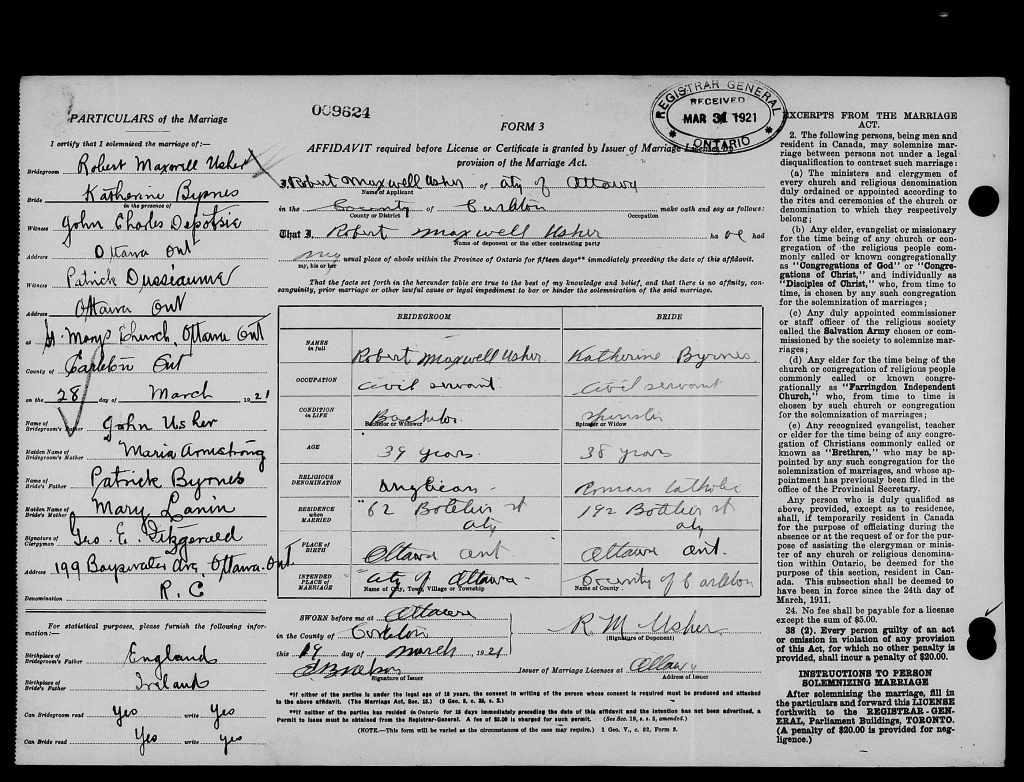 009624
REGISTRAR GENERAL
RECEIVED
MAR 31 1921
ONTARIO
PARTICULARS of the Marriage
I certify that I solemnized the marriage of:—
Bridegroom Robert Maxwell Usher
Bride Katherine Byrnes
in the presence of
Witness John Charles
Address Ottawa Ont
Witness Patrick
Address Ottawa Ont
at St. Marys Church, Ottawa Ont
County of Carleton Ont
on the 28 day of March 1921
Name of Bridegroom's Father John Usher
Maiden Name of Bridegroom's Mother Maria Armstrong
Name of Bride's Father Patrick Byrnes
Maiden Name of Bride's Mother Mary
Signature of Clergyman Geo. E. Fitzgerald
Address 199 Bayswater Ave Ottawa Ont
Denomination R. C
For statistical purposes, please furnish the following information:—
Birthplace of Bridegroom's Father England
Birthplace of Bride's Father Ireland
Can Bridegroom read Yes write Yes
Can Bride read Yes write yes
FORM 3
AFFIDAVIT required before License or Certificate is granted by Issuer of Marriage Licenses by
provision of the Marriage Act.
I, Robert Maxwell Usher of City of Ottawa
Name of Applicant
in the County of Carleton make oath and say as follows:
County or District Occupation
That I, Robert Maxwell Usher ha ve had
Name of deponent or the other contracting party
my usual place of abode within the Province of Ontario for fifteen days** immediately preceding the date of this affidavit.
my, his or her
That the facts set forth in the hereunder table are true to the best of my knowledge and belief, and that there is no affinity, con-
sanguinity, prior marriage or other lawful cause or legal impediment to bar or hinder the solemnization of the said marriage.
BRIDEGROOM BRIDE
NAMES in full Robert Maxwell Usher. Katherine Byrnes.
OCCUPATION Civil servant Civil servant
CONDITION in LIFE Bachelor Spinster
Bachelor or Widower Spinster or Widow
AGE 39 years. 38 years
RELIGIOUS DENOMINATION Anglican Roman Catholic
RESIDENCE when MARRIED 62 Botelier st City 192 Bottler st City
PLACE OF BIRTH Ottawa Ont Ottawa Ont.
INTENDED PLACE OF MARRIAGE City of Ottawa County of Carleton
Name of City, Town, Village or Township Name of County
SWORN before me at Ottawa
in the County of Carleton
this 19 day of March, 1921
Signature of Issuer
R. M. Usher
(Signature of Deponent)
Issuer of Marriage Licenses at Ottawa
Address of Issuer
*If either of the parties is under the legal age of 18 years, the consent in writing of the person whose consent is required must be produced and attached
to the above affidavit. (The Marriage Act, Sec. 15.)
**If neither of the parties has resided in Ontario for 15 days immediately preceding the date of this affidavit and the intention has not been advertised, a
Permit to Issue must be obtained from the Registrar-General. A fee of $5.00 is charged for such permit.
(NOTE.—This form will be varied as the circumstances of the case may require.) 1 Geo. V., c. 32, Form 3.
EXCERPTS FROM THE MARRIAGE
ACT.
2. The following persons, being men and
resident in Canada, may solemnize mar-
riage between persons not under a legal
disqualification to contract such marriage:
(a) The ministers and clergymen of
every church and religious denomination
duly ordained or appointed according to
the rites and ceremonies of the church or
denomination to which they respectively
belong;
(b) Any elder, evangelist or missionary
for the time being of any church or con-
gregation of the religious people com-
monly called or known congregationally
as "Congregations of God" or "Congre-
gations of Christ," and individually as
"Disciples of Christ," who, from time to
time, is chosen by any such congregation
for the solemnization of marriages;
(c) Any duly appointed commissioner
or staff officer of the religious society
called the Salvation Army chosen or com-
missioned by the society to solemnize mar-
riages;
(d) Any elder for the time being of the
church or congregation of religious people
commonly called or known congre-
gationally as "Farringdon Independent
Church," who, from time to time is
chosen by such church or congregation
for the solemnization of marriages;
(e) Any recognized evangelist, teacher
or elder for the time being of any congre-
gation of Christians commonly called or
known as "Brethren," who may be ap-
pointed by any such congregation for the
solemnization of marriages, and whose ap-
pointment has previously been filed in the
office of the Provincial Secretary.
Any person who is duly qualified as
above, provided, except as to residence,
shall, if temporarily resident in Canada
for the purpose of officiating during the
absence or at the request of or for the pur-
pose of assisting the clergyman or minis-
ter of any church or religious denomina-
tion within Ontario, be deemed for the
purpose of this section, resident in Can-
ada. This subsection shall be deemed to
have been in force since the 24th day of
March, 1911.
24. No fee shall be payable for a license
except the sum of $5.00.
38 (2). Every person guilty of an act
or omission in violation of any provision
of this Act, for which no other penalty is
provided, shall incur a penalty of $20.00.
INSTRUCTIONS TO PERSON
SOLEMNIZING MARRIAGE
After solemnizing the marriage, fill in
the particulars and forward this LICENSE
forthwith to the REGISTRAR-GEN-
ERAL, Parliament Buildings, TORONTO.
(A penalty of $20.00 is provided for neg-
ligence.)